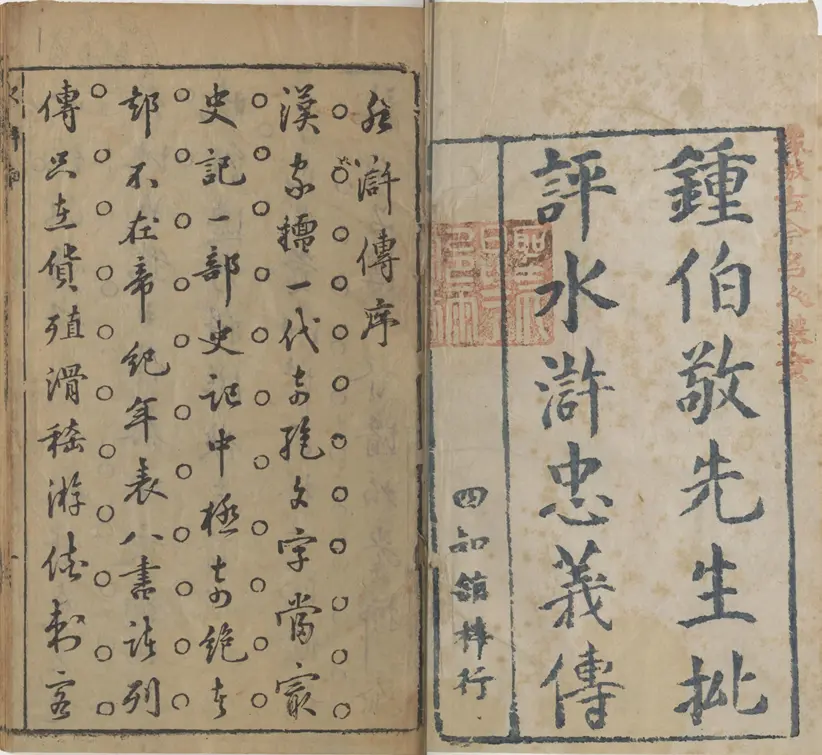 鍾伯敬先生批
評水滸忠義傳
四知館梓行
水滸傳序
漢家一代奇絕文字當㝡
史記一部史記中極奇絕者
却不在帝紀年表八書諸列
傳只在貨殖滑稽游俠刺客